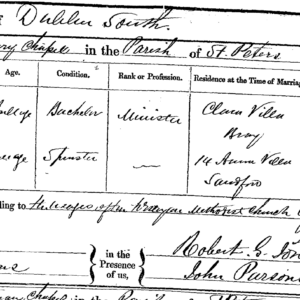 Dublin South
Chapel in the Parish of St. Peters
Age. Condition. Rank or Profession. Residence at the Time of Marriag
Bachelor Minister Clara Villa
Bray
Spinster — 14 Anna Villa
Sandford
ding to the usages of the Wesleyan Methodist Church
in the Presence of us,
Robert G. Jon
John Parson
in the